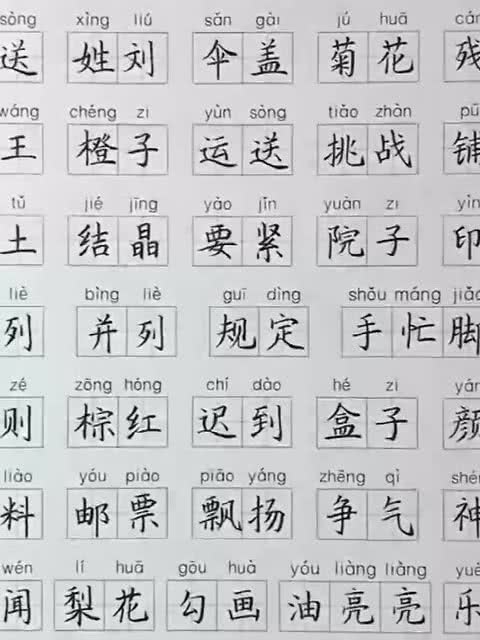 sòng xìng liú sǎn gài jú huā cán
送 姓刘 伞盖 菊花 残
wáng chéng zi yùn sòng tiǎo zhàn pū
王 橙子 运送 挑战 铺
tǔ jié jīng yào jǐn yuàn zi yìn
土 结晶 要紧 院子 印
liè bìng liè guī dìng shǒu máng jiǎo
列 并列 规定 手忙脚
zé zōng hóng chí dào hé zi yán
则 棕红 迟到 盒子 颜
liào yóu piào piāo yáng zhēng qì shén
料 邮票 飘扬 争气 神
wén lí huā gōu huà yóu liàng liàng yuè
闻 梨花 勾画 油亮亮 乐